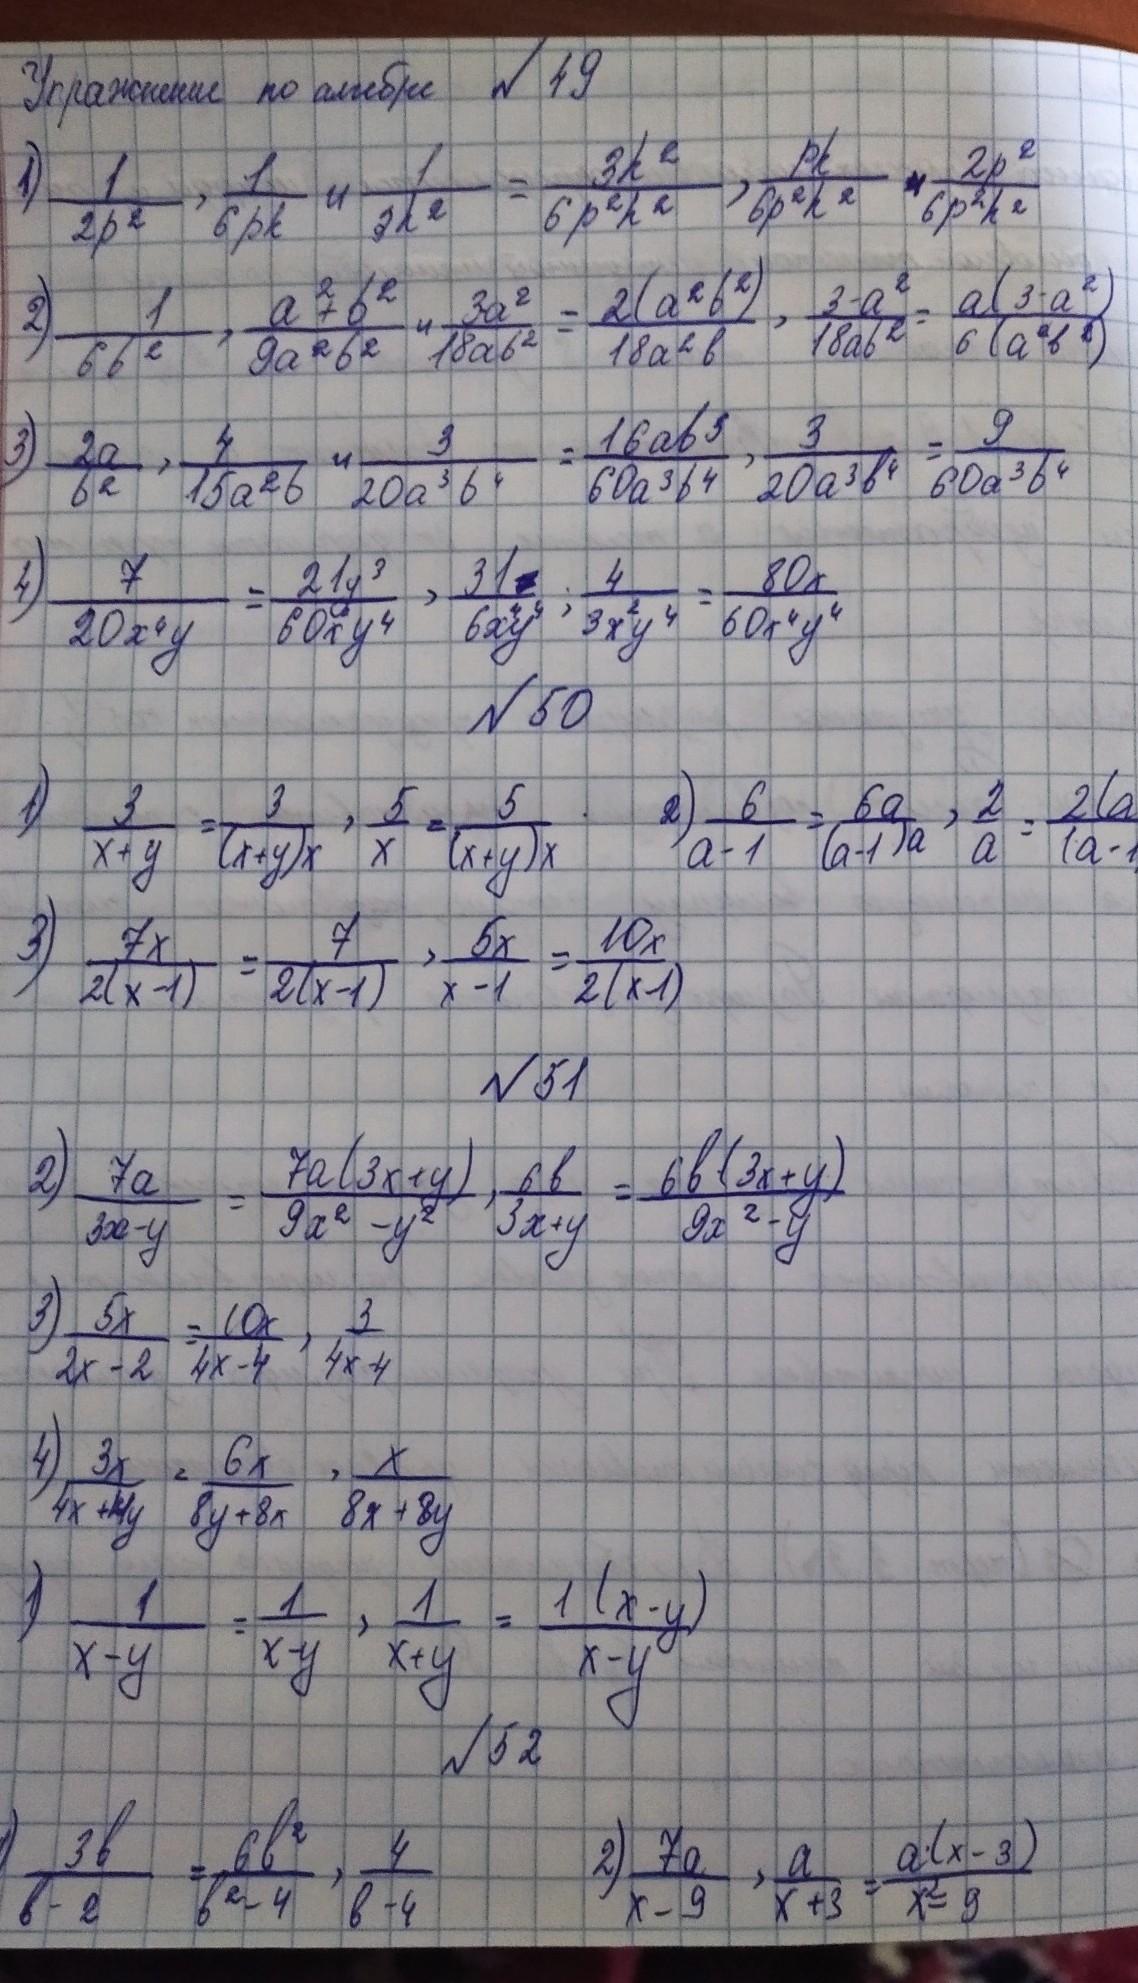 Упражнение по алгебре № 49
1) 1/2p², 1/6pk и 1/3k² = 3k²/6p²k², pk/6p²k² и 2p²/6p²k²
2) 1/6b², a²+b²/9a²b² и 3a²/18ab² = 2(a²b²)/18a²b, 3-a²/18ab² = a(3-a²)/6(a²b²)
3) 2a/b², 4/15a²b и 3/20a³b⁴ = 16ab³/60a³b⁴, 3/20a³b⁴ = 9/60a³b⁴
4) 7/20x⁴y = 21y³/60x⁴y⁴, 31/6x⁴y⁴; 4/3x²y⁴ = 80x/60x⁴y⁴
№ 50
1) 3/x+y = 3/(x+y)x, 5/x = 5/(x+y)x 2) 6/a-1 = 6a/(a-1)a, 2/a = 2(a/(a-1
3) 7x/2(x-1) = 7/2(x-1), 5x/x-1 = 10x/2(x-1)
№ 51
2) 7a/3x-y = 7a(3x+y)/9x²-y², 6b/3x+y = 6b·(3x+y)/9x²-y
3) 5x/2x-2 = 10x/4x-4, 3/4x-4
4) 3x/4x+4y = 6x/8y+8x, x/8x+8y
1) 1/x-y = 1/x-y, 1/x+y = 1(x-y)/x-y
№ 52
) 3b/b-2 = 6b²/b²-4, 4/b-4 2) 7a/x-9, a/x+3 = a·(x-3)/x²-9